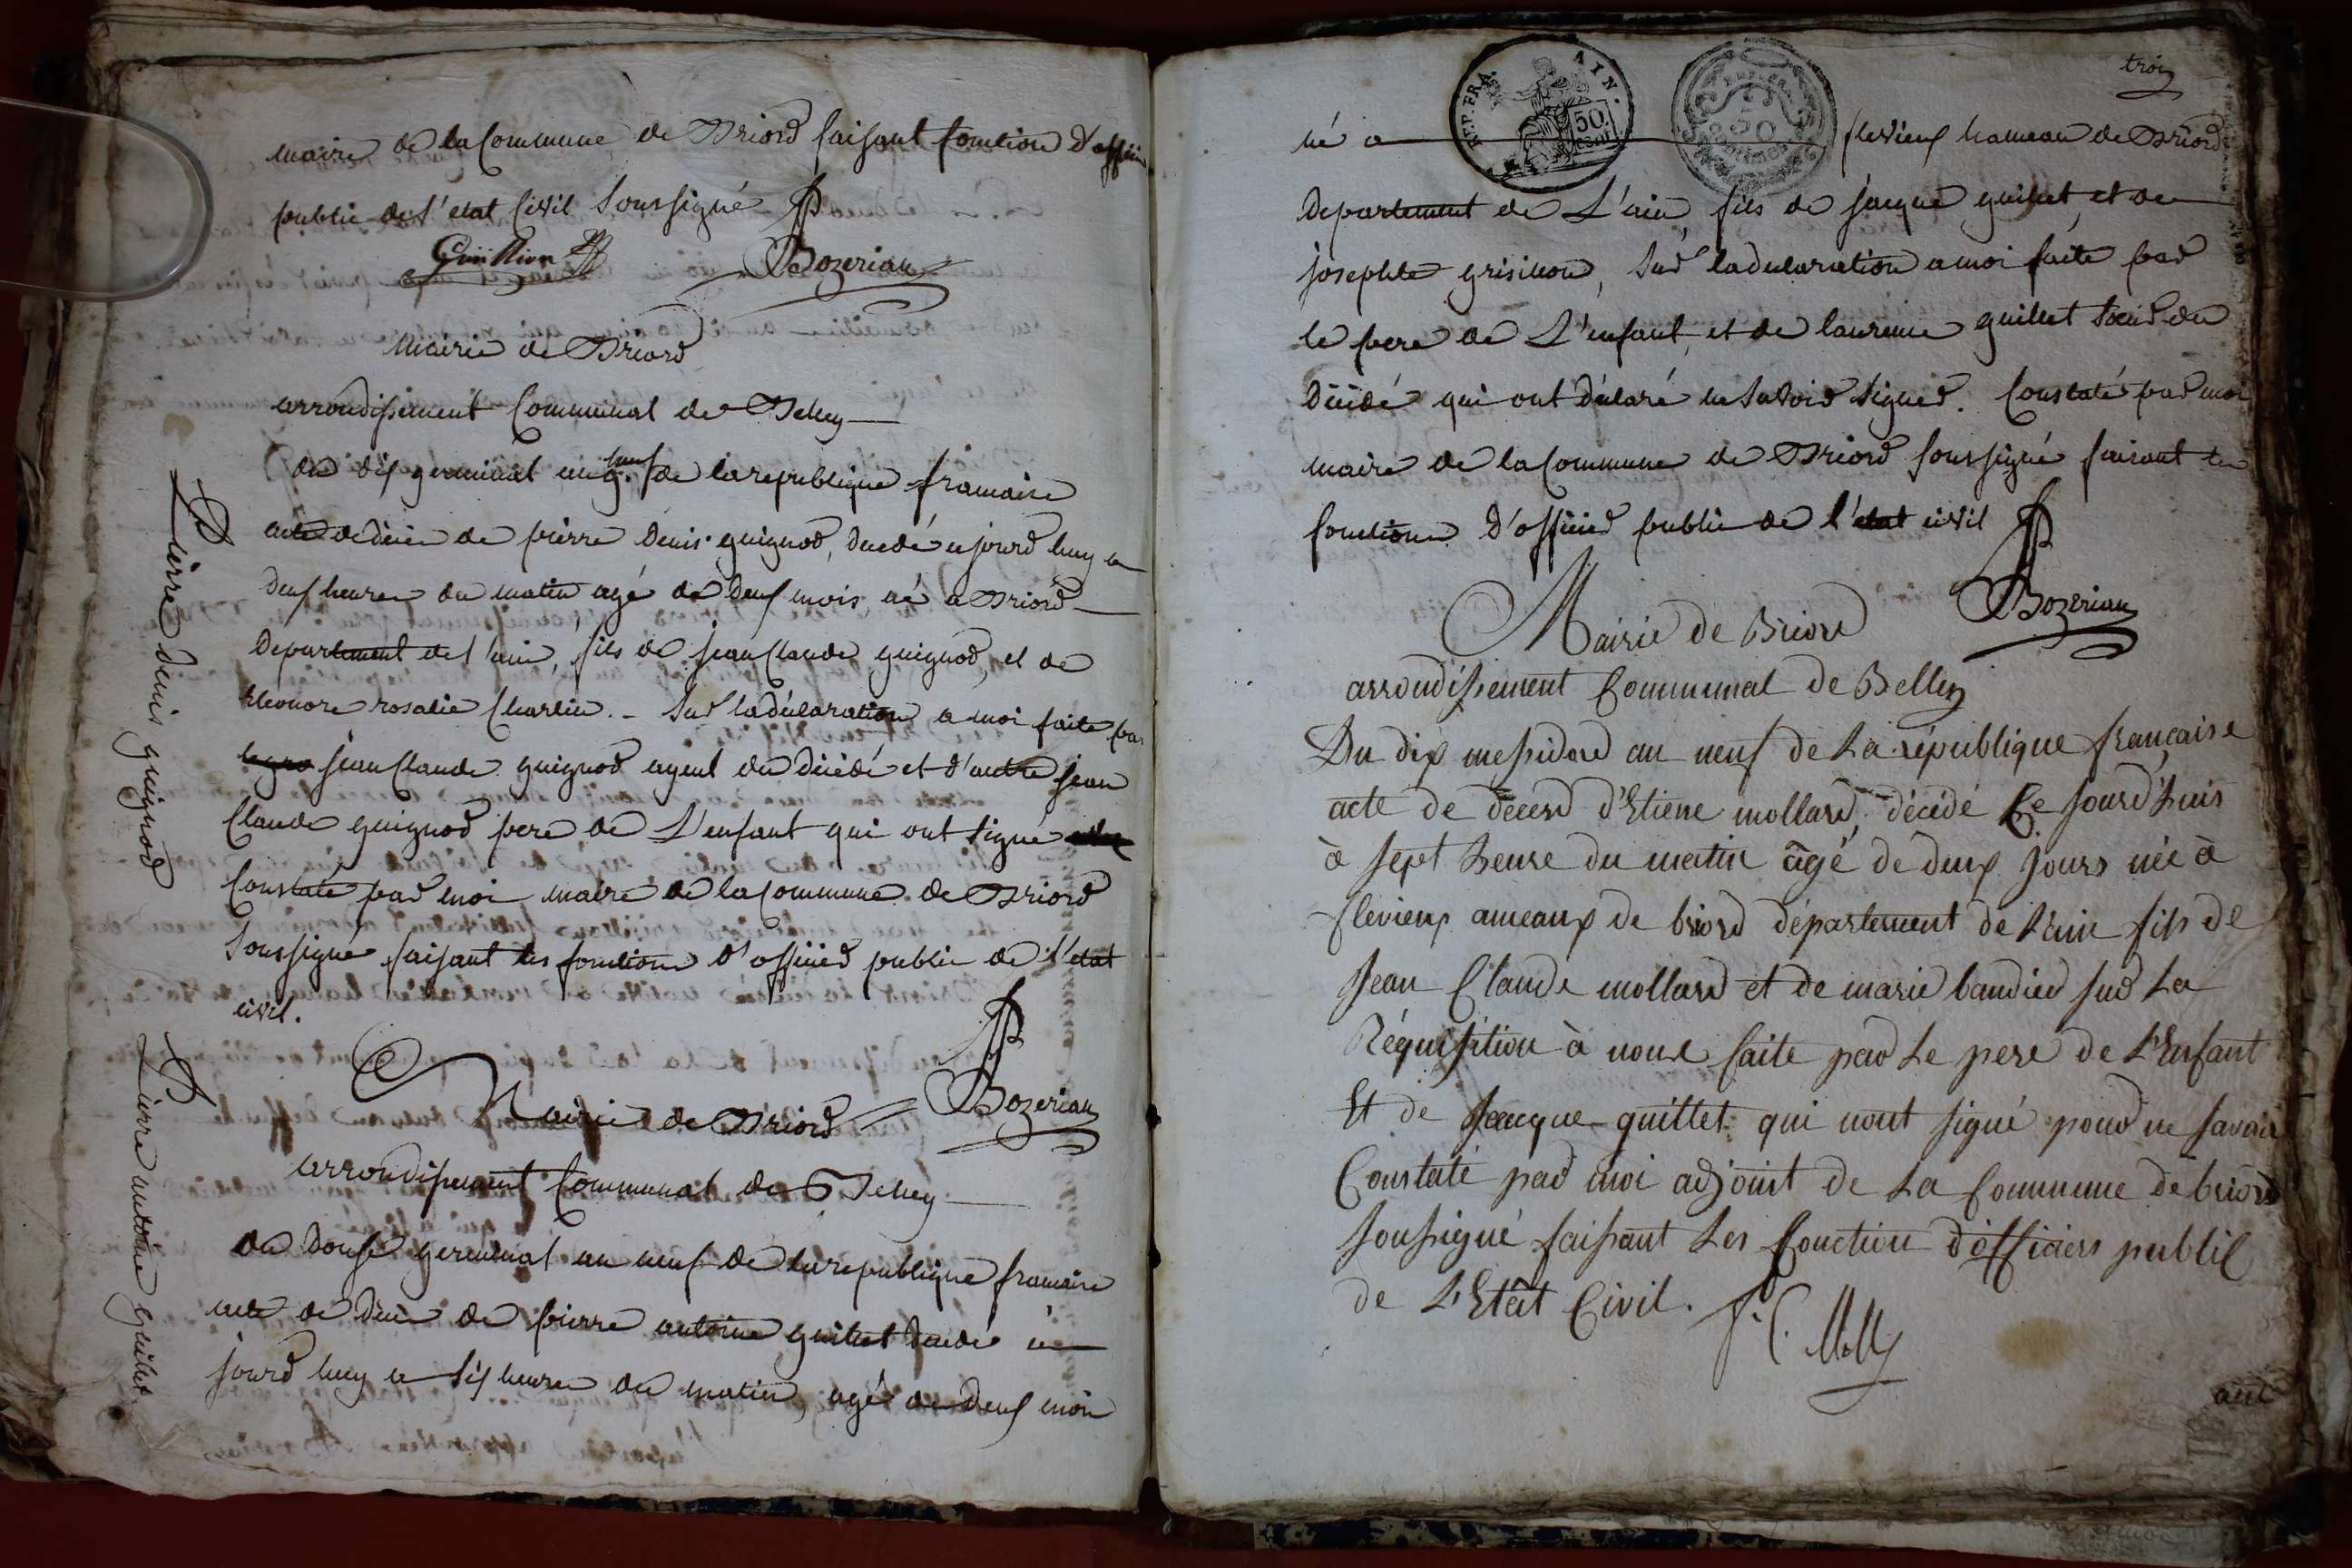 maire de la Commune de Briord faisant fonction d'officier
public de l'etat Civil Soussigné
Guillion Bozerian
Mairie de Briord
arrondissement Communal de Belley
du dix germinal an 9. neuf de la republique francaise
acte de décés de pierre denis guignod, décédé ce jourd huy a
deux heures du matin agé de deux mois, né a Briord
Departement de l'ain, fils de jean Claude guignod, et de
eleonore rosalie Charlin. - Sur la déclaration a moi faite par
jean Claude guignod ayeul du décédé et d'autre jean
Claude guignod pere de L'enfant qui ont signé
Constaté par moi maire de la Commune de Briord
Soussigné faisant les fonctions d'officier public de l'etat
civil.
Bozerian
Mairie de Briord
arrondissement Communal de Belley
du douse germinal an neuf de la republique francaise
acte de décés de pierre antoine guillet décédé ce
jourd huy a six heures du matin, agé de deux mois
Pierre denis guignod
Pierre antoine guillet
trois
REP. FRA. AIN.
50 Cent.
50 Centimes
né a flevieux hameau de Briord
Departement de L'ain, fils de jacque guillet et de
josephte grisillon, Sur la déclaration a moi faite par
le pere de L'enfant, et de laurence guillet soeur du
Décédé qui ont déclaré ne Savoir Signer. Constaté par moi
maire de la Commune de Briord soussigné faisant les
fonctions d'officier public de l'etat civil
Bozerian
Mairie de Briord
arrondissement Communal de Belley
Du dix messidor an neuf de La république française
acte de décerd d'Etiene mollard, décédé Ce Jourd'huis
à sept heure du matin âgé de deux Jours née à
flevieux ameaux de briord département de L'ain fils de
Jean Claude mollard et de marie baudier sur La
Réquisition à nous faite par Le pere de L'Enfant
Et de Jacque guillet qui nont signé pour ne savoir
Constaté par moi adjoint de La Commune de briord
sousigné faisant Les fonction d'officiers publiè
de L'Etat Civil.